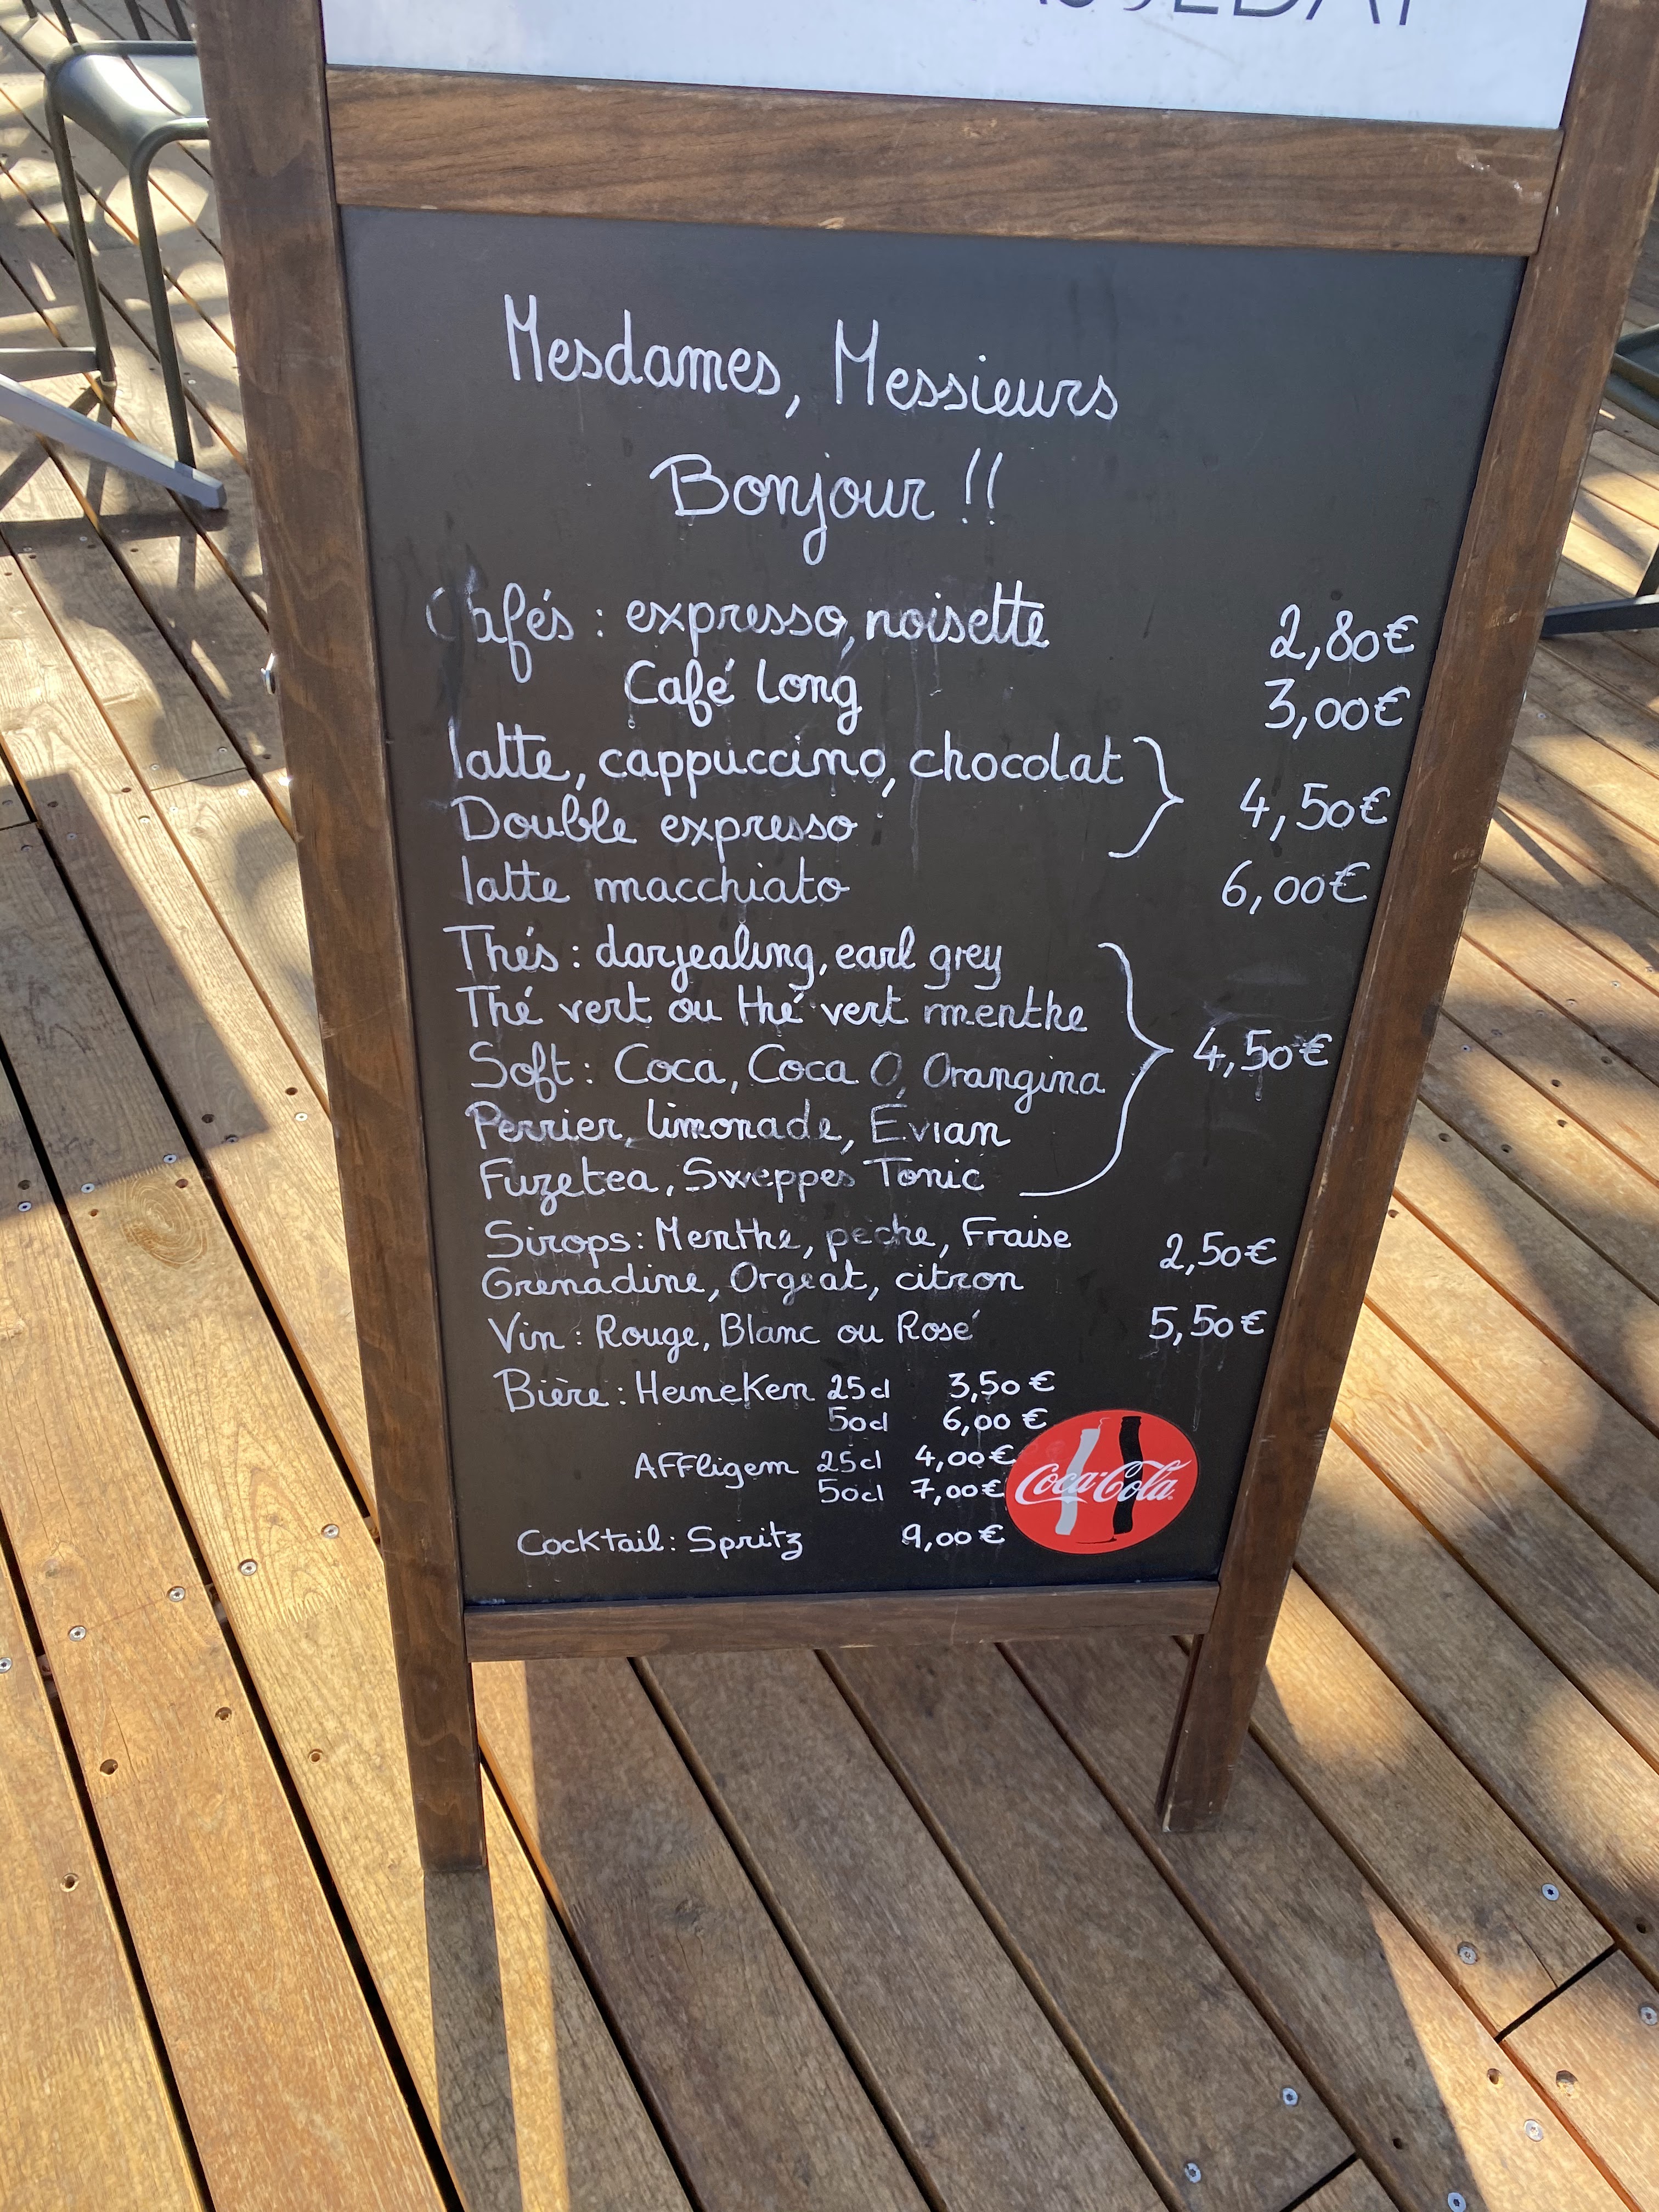 Mesdames, Messieurs
Bonjour !!
Cafés : expresso, noisette 2,80€
Café long 3,00€
latte, cappuccino, chocolat
Double expresso 4,50€
latte macchiato 6,00€
Thés : darjealing, earl grey
Thé vert ou thé vert menthe
Soft : Coca, Coca 0, Orangina 4,50€
Perrier, limonade, Évian
Fuzetea, Sweppes Tonic
Sirops : Menthe, peche, Fraise 2,50€
Grenadine, Orgeat, citron
Vin : Rouge, Blanc ou Rosé 5,50€
Bière : Heineken 25cl 3,50€
50cl 6,00€
AFFligem 25cl 4,00€
50cl 7,00€
Coca-Cola
Cocktail : Spritz 9,00€